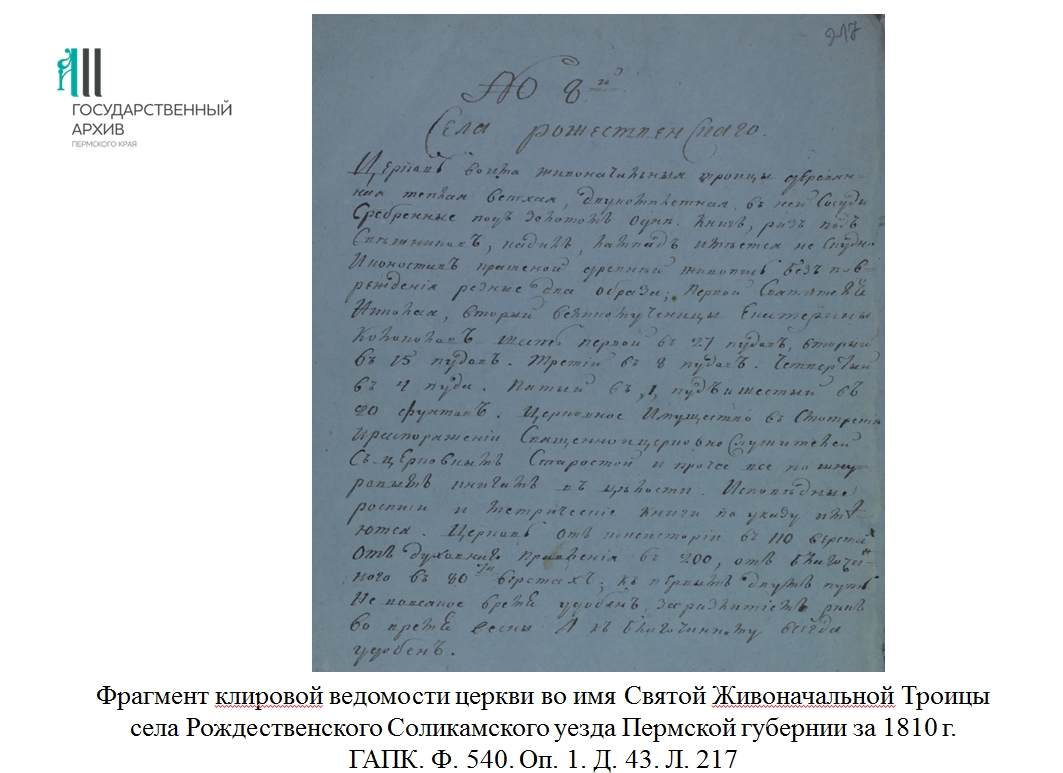 ГОСУДАРСТВЕННЫЙ
АРХИВ
ПЕРМСКОГО КРАЯ
217
№ 8й
Села рожественскаго.
Церковь во имя живоначальныя троицы деревян-
ная теплая ветхая, двукомплетная, въ ней Сосуды
Сребренные подъ золотомъ одне. книгъ, ризъ подъ
Свѣшниковъ, кадилъ, лампадъ имѣется не Скудно
Иконостасъ крашеной древней живописи безъ пов-
режденія резные два образа; Первой Святителя
Николая, вторый великомученицы Екатерины
Колоколовъ шесть первой въ 27 пудахъ, вторый
въ 15 пудахъ. Третій въ 8 пудахъ. Четвертый
въ 4 пуда. Пятый въ 1, пудъ и шестый въ
20 фунтахъ. Церковное Имущество въ Смотрении
и распоряженіи Священно и церковно Служителей
Съ церковнымъ Старостой и прочее все по шну-
ровымъ книгамъ въ целости. Исповѣдные
росписи и метрическіе книги по указу имѣ-
ются. Церковь отъ консисторіи въ 110 верстах
отъ духовнаго Правленія въ 200, отъ благочин-
ного въ 80ти верстахъ; къ первымъ двумъ путь
Не во всякое время удобенъ, за разлитіемъ рекъ
во время весны А къ благочинному всегда
удобенъ.
Фрагмент клировой ведомости церкви во имя Святой Живоначальной Троицы
села Рождественского Соликамского уезда Пермской губернии за 1810 г.
ГАПК. Ф. 540. Оп. 1. Д. 43. Л. 217